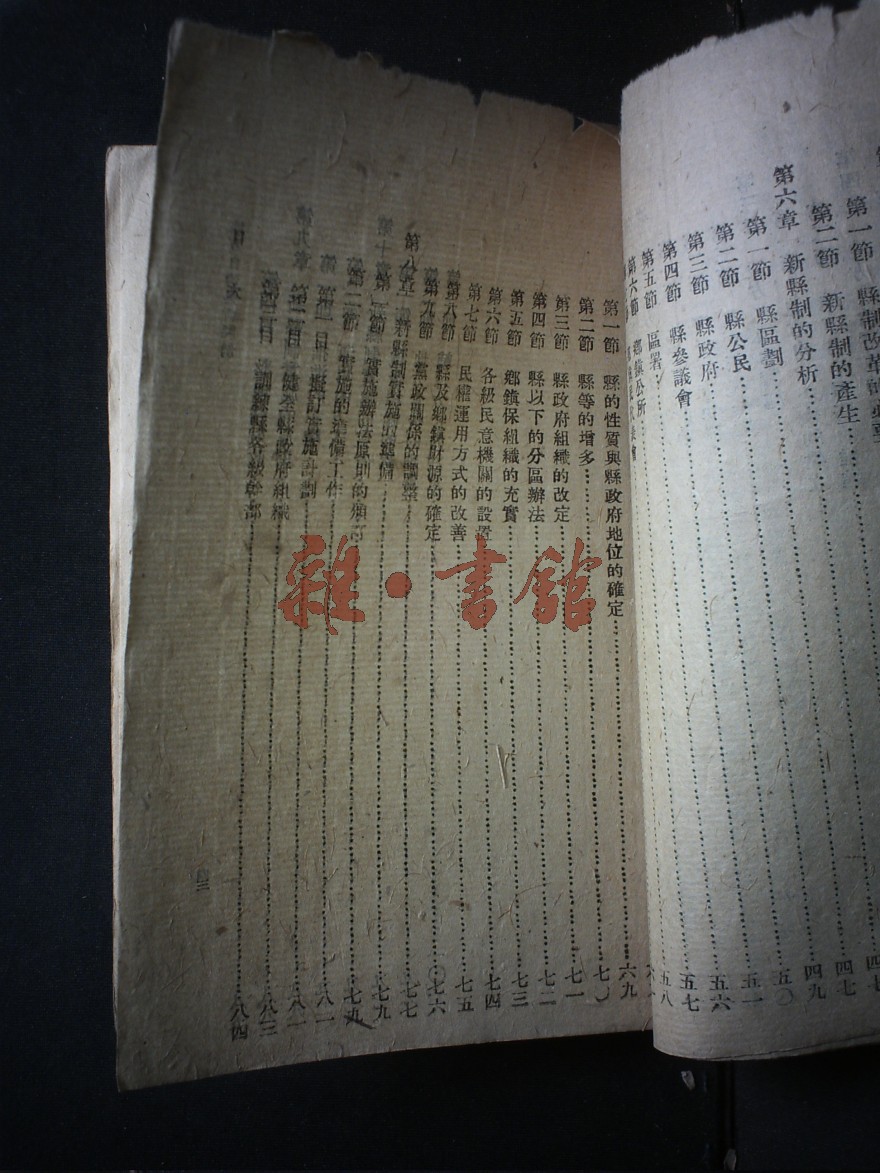 第一節
縣制改革的必要
四七
第二節 新縣制的產生
四七
第六章 新縣制的分析
四九
第一節 縣區劃
五〇
第二節 縣公民
五一
第三節 縣政府
五六
第四節 縣參議會
五七
第五節 區署
五八
第六節 鄉鎮公所
第一節 縣的性質與縣政府地位的確定
六九
第二節 縣等的增多
七〇
第三節 縣政府組織的改定
七一
第四節 縣以下的分區辦法
七二
第五節 鄉鎮保組織的充實
七三
第六節 各級民意機關的設置
七四
第七節 民權運用方式的改善
七五
第八節 縣及鄉鎮財源的確定
七六
第九節 黨政關係的調整
七七
第八章 新縣制實施的準備
七九
第一節 實施辦法原則的頒訂
七九
第二節 實施的準備工作
八一
第一目 擬訂實施計劃
八一
第二目 健全縣政府組織
八三
訓練縣各級幹部
八四
三
雜·書館